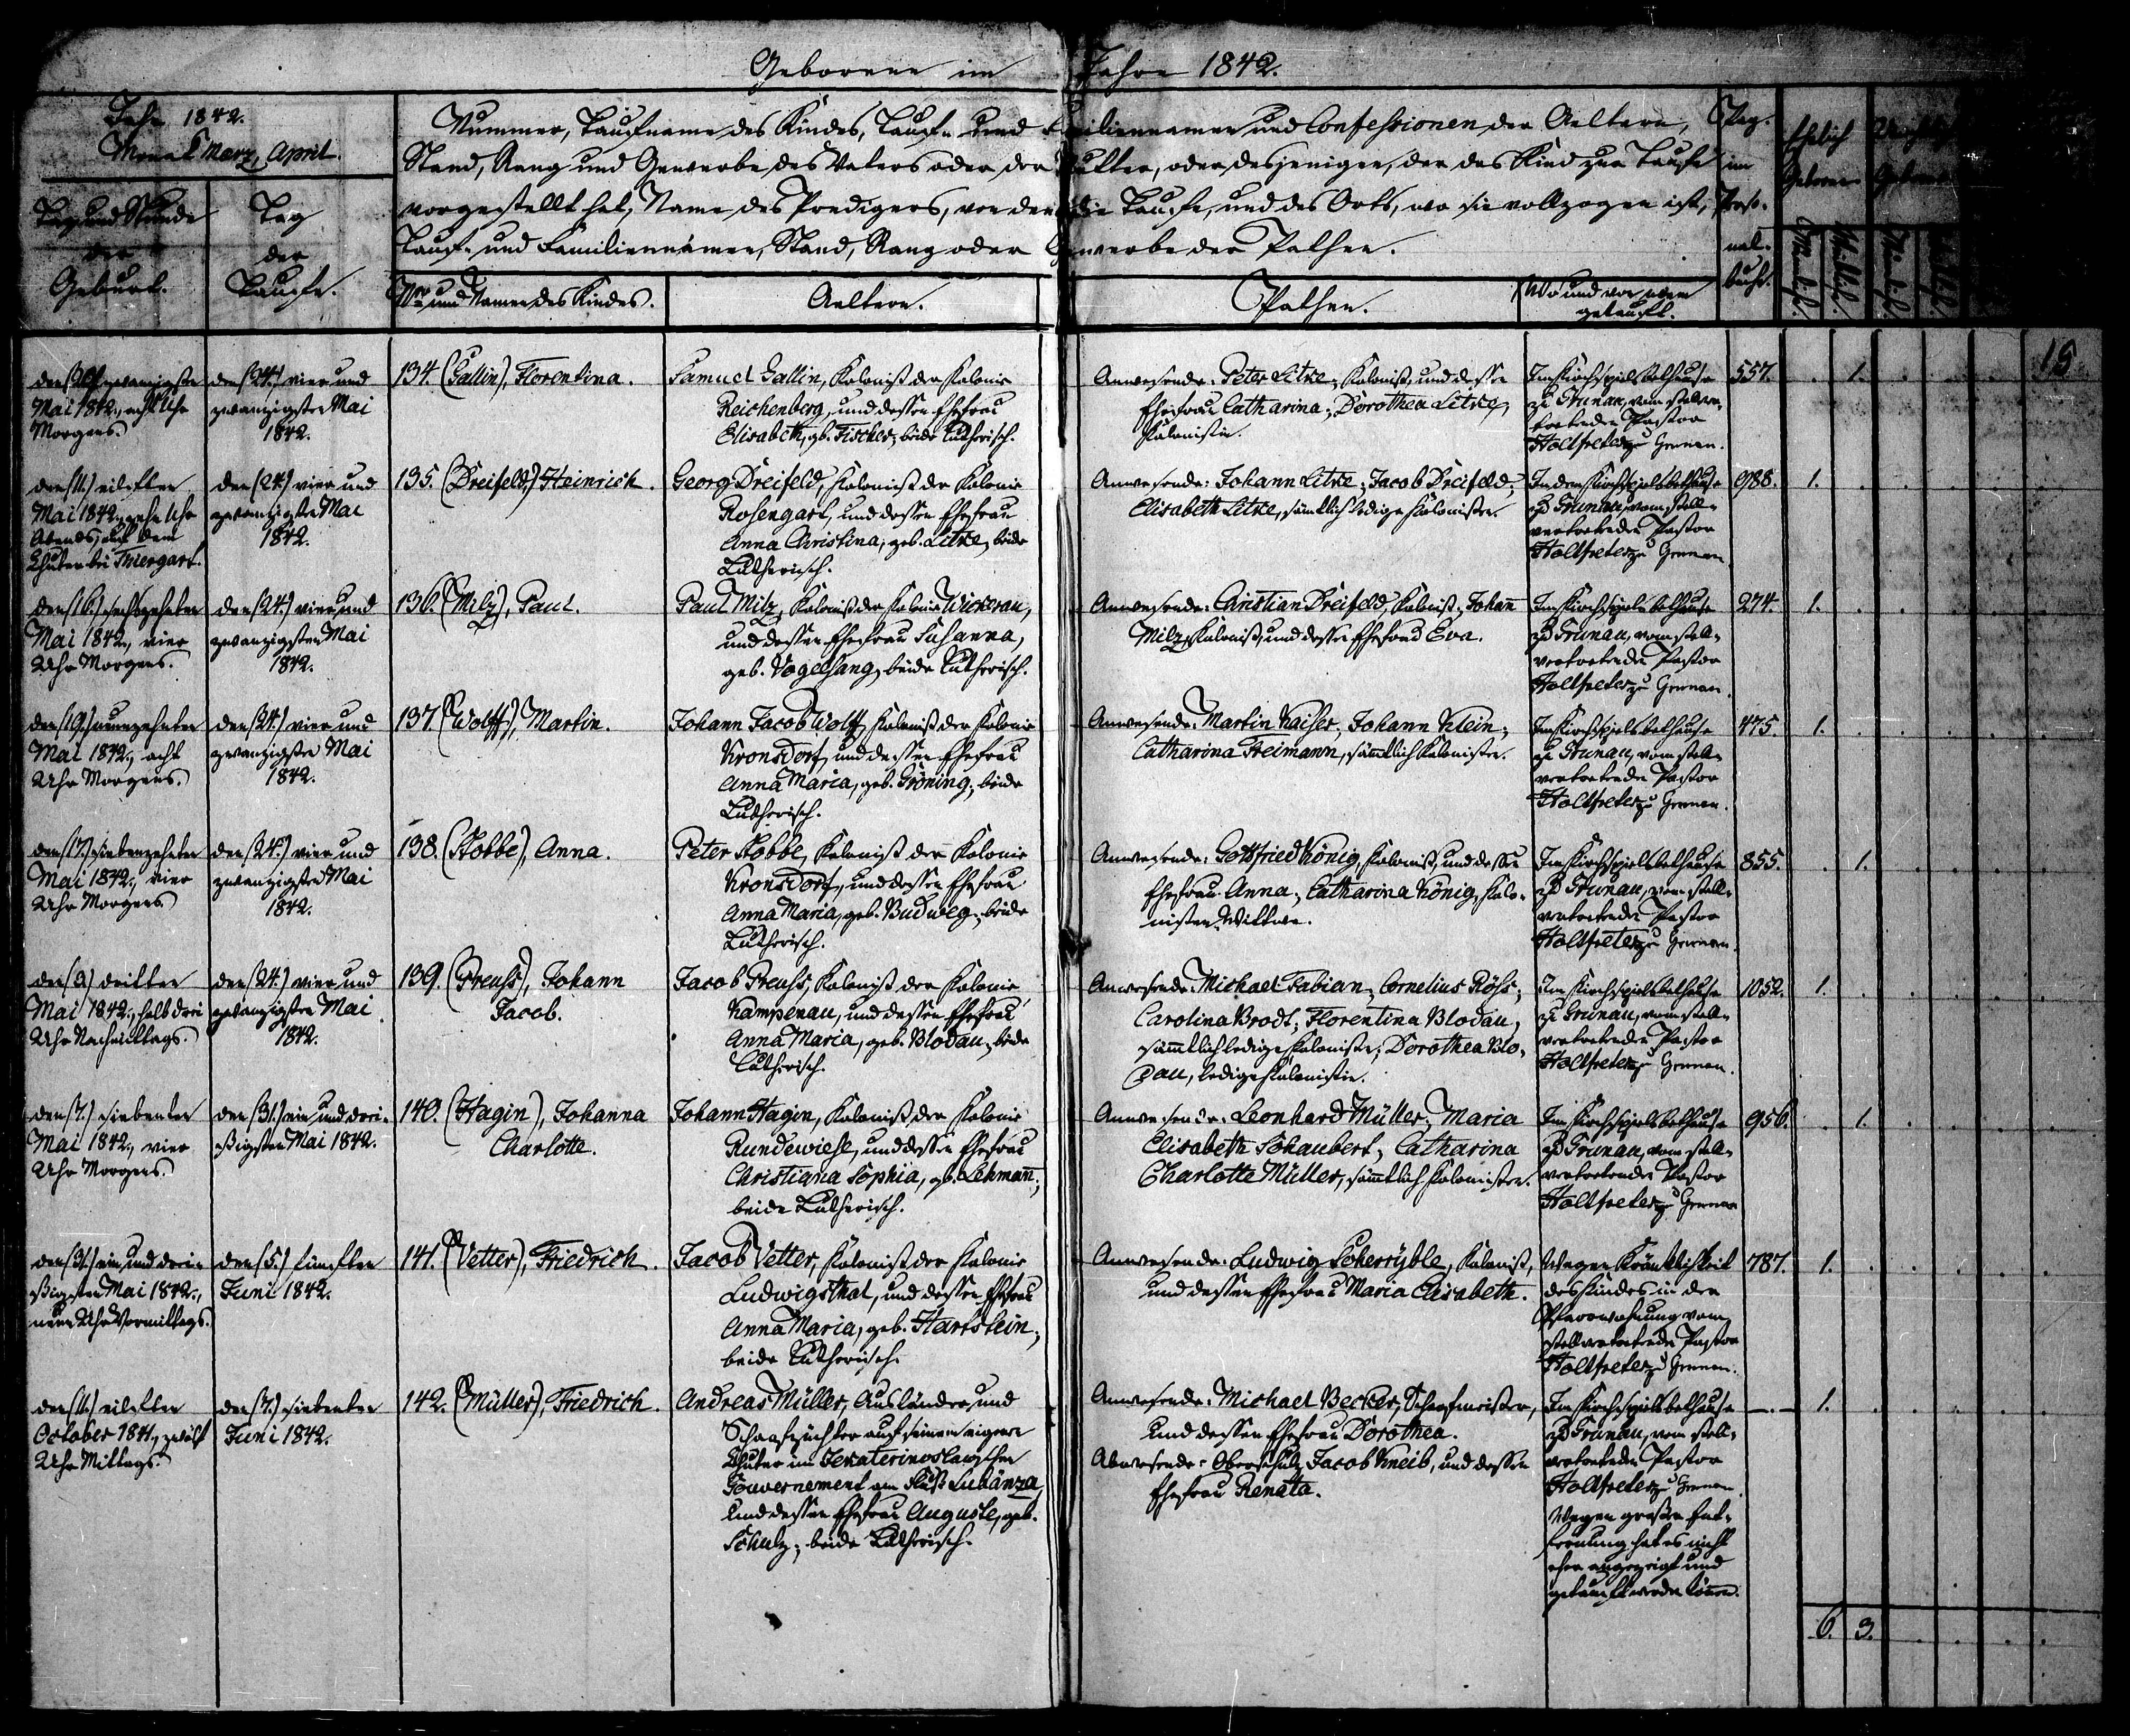 Geborene im Jahre 1842.
Jahr 1842.
Monat Maerz, April.
Tag und Stunde der Geburt.
Tag der Taufe.
Nummer, Taufname des Kindes, Tauf- und Familiennamen und Confessionen der Aeltern,
Stand, Rang und Gewerbe des Vaters oder der Mutter, oder desjenigen, der das Kind zur Taufe
vorgestellt hat, Name des Predigers, von dem die Taufe, und des Orts, wo sie vollzogen ist,
Tauf- und Familiennamen, Stand, Rang oder Gewerbe der Pathen.
Nro und Namen des Kindes.
Aeltern.
Pathen.
Wo und von wem
getauft.
Pag.
im
Perso-
nal-
buche.
Ehelich
Geborene
Männlich.
Weiblich.
15
den (20) zwanzigsten
Mai 1842., acht Uhr
Morgens.
den (24.) vier und
zwanzigsten Mai
1842.
134. (Gallin), Florentina.
Samuel Gallin, Kolonist der Kolonie
Reichenberg, und dessen Ehefrau
Elisabeth, gb. Fischer, beide Lutherisch.
Anwesende: Peter Litke, Kolonist, und dessen
Ehefrau Catharina; Dorothea Litke,
Kolonistin.
Im Kirchspielsbethause
zu Grunau, vom stellver-
tretenden Pastor
Holtfreter zu Grunau.
557. . 1.
den (11.) eilften
Mai 1842., zehn Uhr
Abends, auf dem
Chutor bei Thiergart.
den (24.) vier und
zwanzigsten Mai
1842.
135. (Dreifeld), Heinrich.
Georg Dreifeld, Kolonist der Kolonie
Rosengart, und dessen Ehefrau
Anna Christina, geb. Litke, beide
Lutherisch.
Anwesende: Johann Litke; Jacob Dreifeld;
Elisabeth Litke, sämtlich ledige Kolonisten.
In dem Kirchspielsbethause
zu Grunau, vom stell-
vertretenden Pastor
Holtfreter zu Grunau
988. 1.
den (16.) sechszehnten
Mai 1842., vier
Uhr Morgens.
den (24.) vier und
zwanzigsten Mai
1842.
136. (Milz), Paul.
Paul Milz, Kolonist der Kolonie Wickerau,
und dessen Ehefrau Susanna,
geb. Vogelsang, beide Lutherisch.
Anwesende: Christian Dreifeld, Kolonist; Johann
Milz, Kolonist, und dessen Ehefrau Eva.
Im Kirchspielsbethause
zu Grunau, vom stell-
vertretenden Pastor
Holtfreter zu Grunau.
274. 1.
den (19.) neunzehnten
Mai 1842., acht
Uhr Morgens.
den (24.) vier und
zwanzigsten Mai
1842.
137. (Wolff), Martin.
Johann Jacob Wolff, Kolonist der Kolonie
Kronsdorf, und dessen Ehefrau
Anna Maria, geb. Gröning, beide
Lutherisch.
Anwesende: Martin Kaiser; Johann Klein;
Catharina Freimann, sämtlich Kolonisten.
Im Kirchspielsbethause
zu Grunau, vom stell-
vertretenden Pastor
Holtfreter zu Grunau.
475. 1.
den (17.) siebenzehnten
Mai 1842., vier
Uhr Morgens.
den (24.) vier und
zwanzigsten Mai
1842.
138. (Stobbe), Anna.
Peter Stobbe, Kolonist der Kolonie
Kronsdorf, und dessen Ehefrau
Anna Maria, geb. Budweg, beide
Lutherisch.
Anwesende: Gottfried König, Kolonist, und dessen
Ehefrau Anna; Catharina König, Kolo-
nisten-Wittwe.
Im Kirchspielsbethause
zu Grunau, vom stell-
vertretenden Pastor
Holtfreter zu Grunau.
855. . 1.
den (3) dritten
Mai 1842., halb drei
Uhr Nachmittags.
den (24.) vier und
zwanzigsten Mai
1842.
139. (Preuss), Johann
Jacob.
Jacob Preuss, Kolonist der Kolonie
Kampenau, und dessen Ehefrau
Anna Maria, geb. Blodau, beide
Lutherisch.
Anwesende: Michael Fabian; Cornelius Röhs;
Carolina Brodt; Florentina Blodau,
sämmtlich ledige Kolonisten; Dorothea Blo-
dau, ledige Kolonistin.
Im Kirchspielsbethause
zu Grunau, vom stell-
vertretenden Pastor
Holtfreter zu Grunau.
1052. 1.
den (7.) siebenten
Mai 1842., vier
Uhr Morgens.
den (31.) ein und drei-
ßigsten Mai 1842.
140. (Hagin), Johanna
Charlotte.
Johann Hagin, Kolonist der Kolonie
Rundewiese, und dessen Ehefrau
Christiana Sophia, gb. Lehmann,
beide Lutherisch.
Anwesende: Leonhard Müller; Maria
Elisabeth Schaubert; Catharina
Charlotte Müller, sämtlich Kolonisten.
Im Kirchspielsbethause
zu Grunau, vom stell-
vertretenden Pastor
Holtfreter zu Grunau
956. . 1.
den (31.) ein und drei-
ßigsten Mai 1842.,
neun Uhr Vormittags.
den (5.) fünften
Juni 1842.
141. (Vetter), Friedrich.
Jacob Vetter, Kolonist der Kolonie
Ludwigsthal, und dessen Ehefrau
Anna Maria, geb. Hartstein,
beide Lutherisch.
Anwesende: Ludwig Scherryble, Kolonist,
und dessen Ehefrau Maria Elisabeth.
Wegen Kränklichkeit
des Kindes in der
Pfarrwohnung vom
stellvertretenden Pastor
Holtfreter zu Grunau.
787. 1.
den (11.) eilften
October 1841., zwölf
Uhr Mittags.
den (7.) siebenten
Juni 1842.
142. (Müller), Friedrich.
Andreas Müller, Ausländer und
Schaafzüchter auf seinem eigenen
Chutor im Jekaterinoslawschen
Gouvernement am Fluß Lubänza,
und dessen Ehefrau Auguste, geb.
Schulz, beide Lutherisch.
Anwesende: Michael Becker, Schafmeister,
und dessen Ehefrau Dorothea.
Abwesende: Oberschulz Jacob Kneib, und dessen
Ehefrau Renata.
Im Kirchspielsbethause
zu Grunau, vom stell-
vertretenden Pastor
Holtfreter zu Grunau.
Wegen großer Ent-
fernung hat es nicht
eher angezeigt und
getauft werden können.
—.— 1.
6. 3.